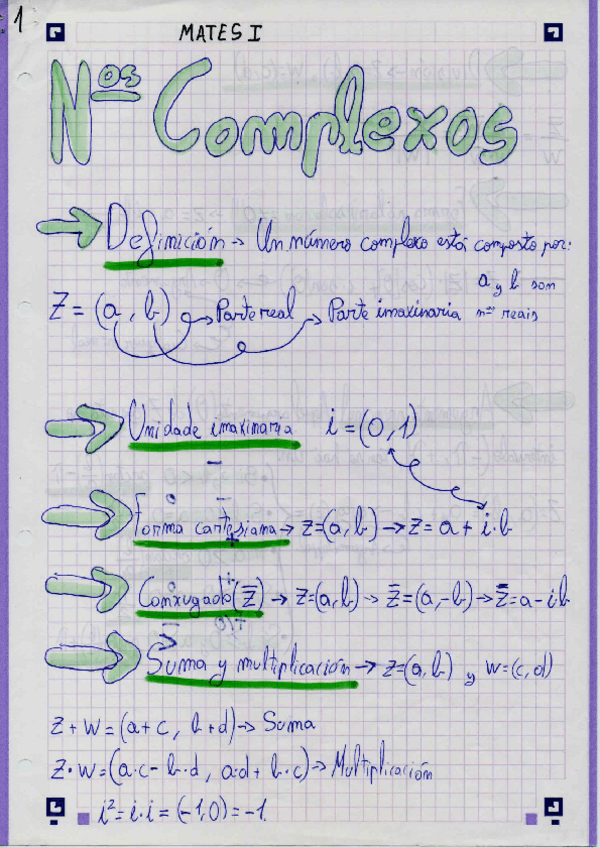 1
MATES I
Nos Complexos
Definición → Un número complexo está composto por:
a y b son
Z = (a, b) → Parte real → Parte imaxinaria nos reais
Unidade imaxinaria i = (0,1)
Forma cartesiana → z=(a,b) → z = a + i·b
Conxugado (z̅) → z=(a,b) → z̅=(a,-b) → z̅=a-ib
Suma y multiplicación → z=(a,b) y w=(c,d)
z+w=(a+c, b+d) → Suma
z·w=(a·c-b·d, a·d+b·c) → Multiplicación
i²=i·i=(-1,0)=-1.